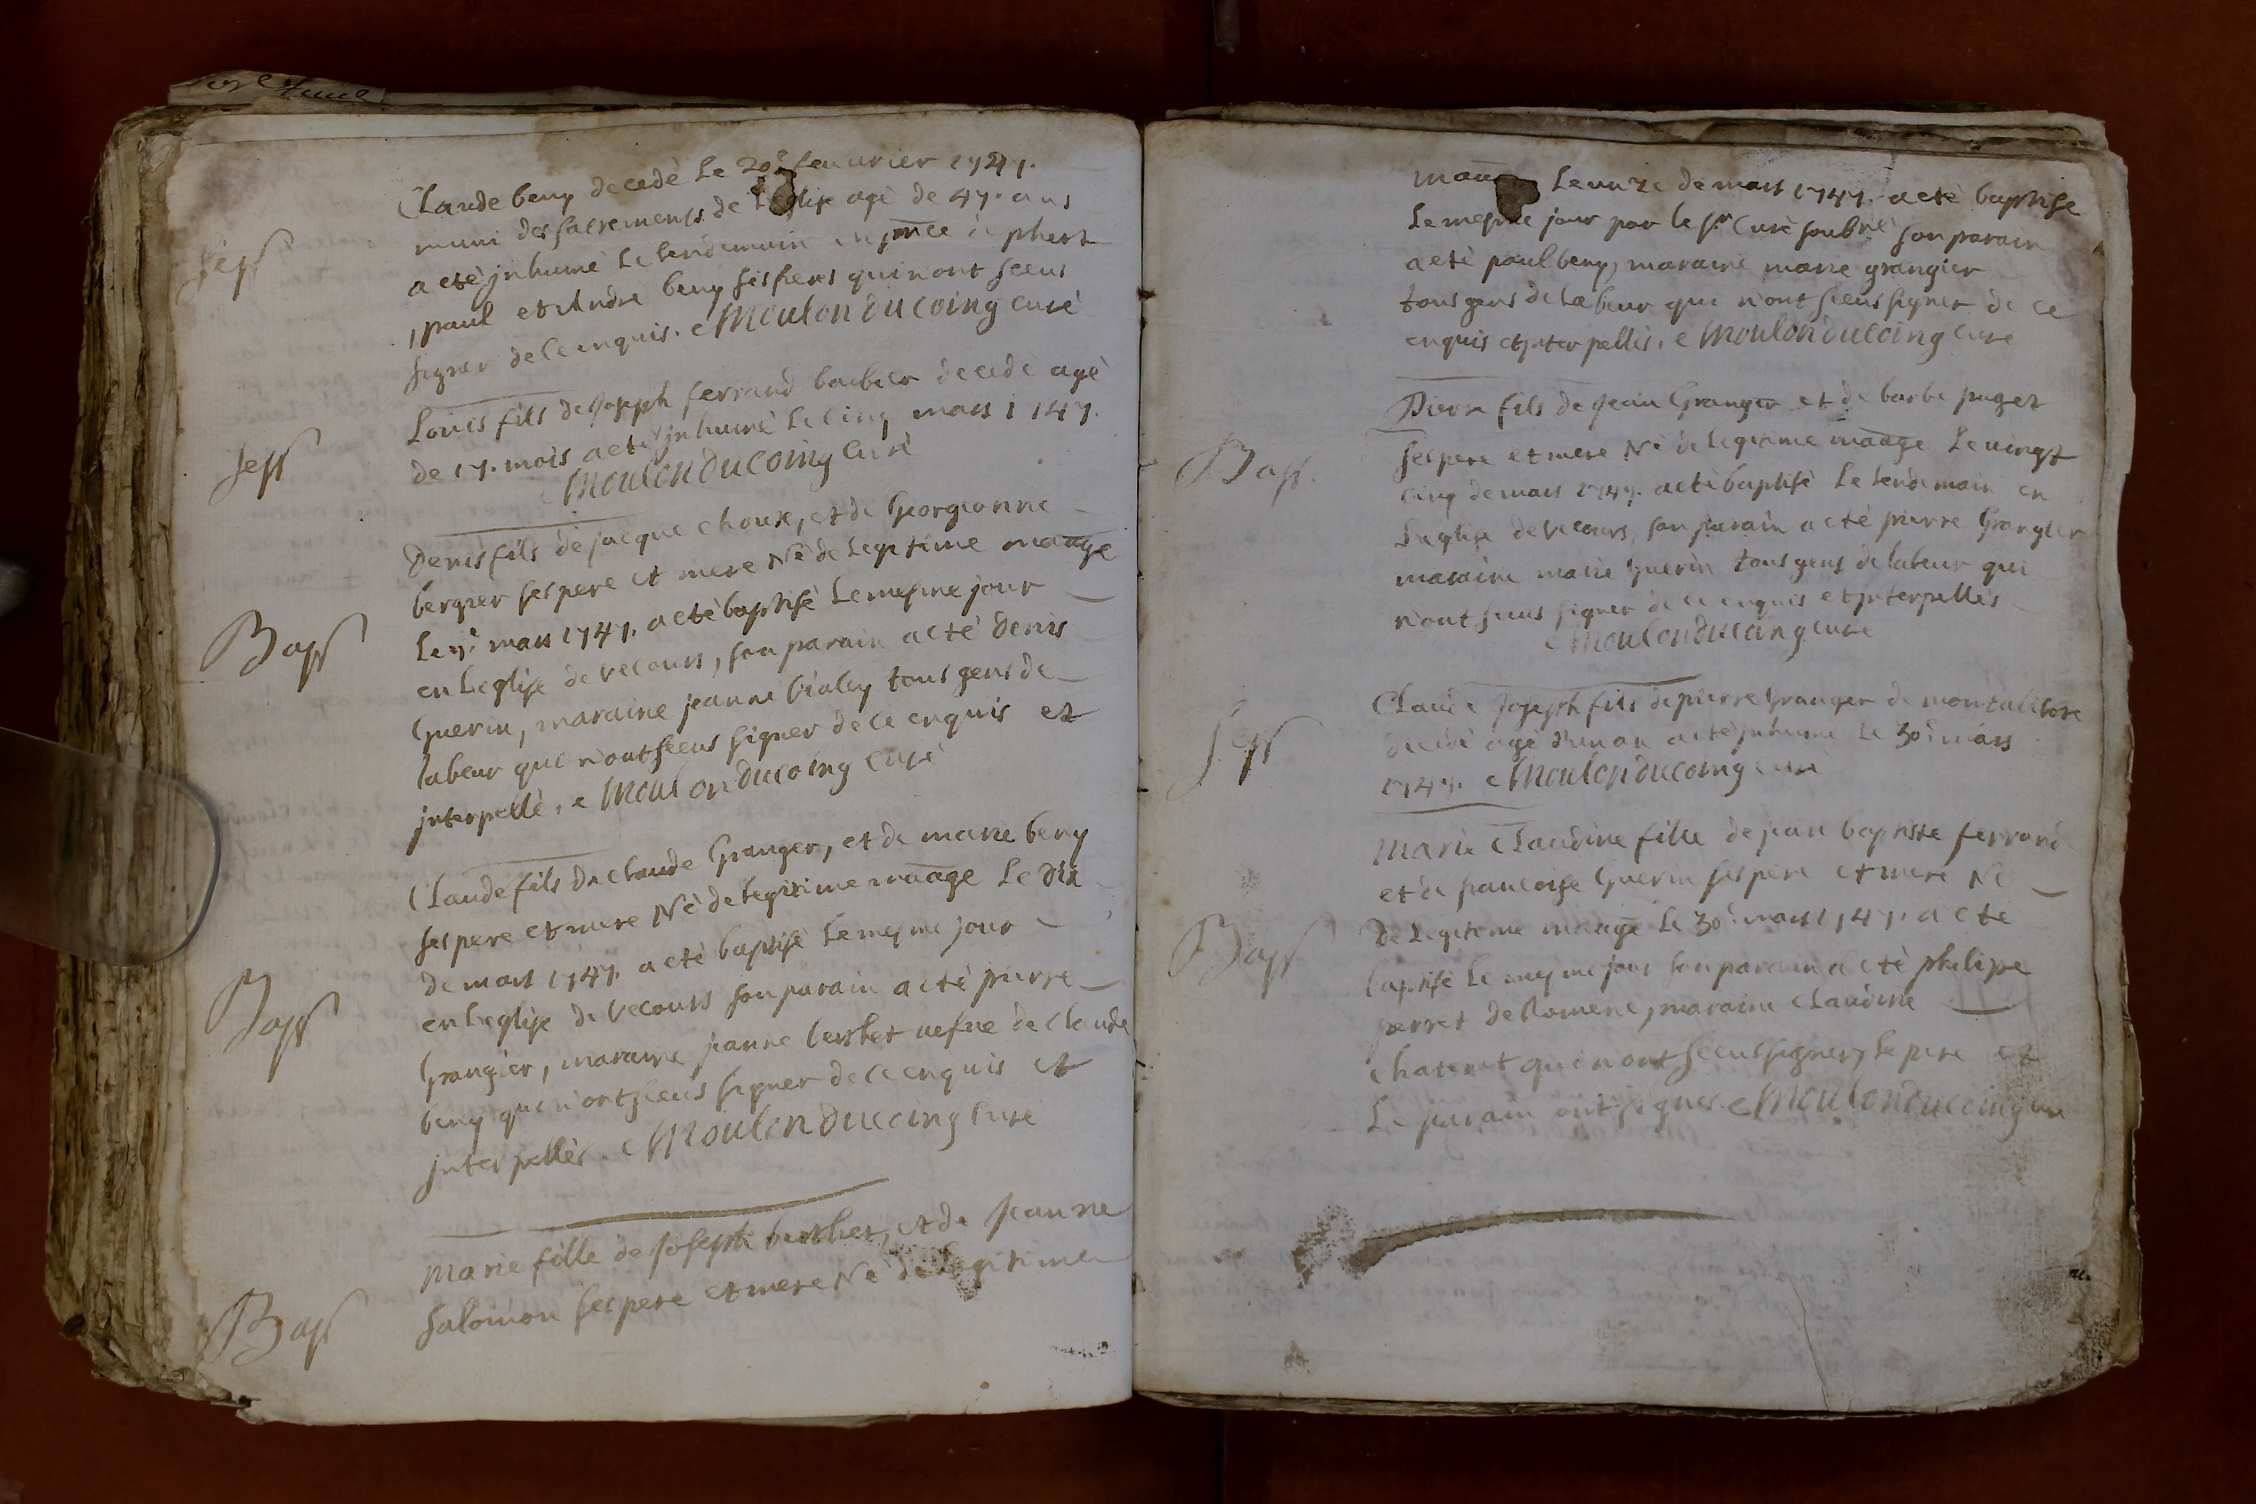 Claude beny decedè Le 20e feuurier 1747.
muni des sacrements de L'eglise agè de 47. ans
a etè jnhumè Le lendemain en pnce
paul et Andre beny ses freres qui n'ont sceus
signer de ce enquis. Moulon du coing curè
Sep
Louis fils de Joseph ferrand barbier decedè agè
de 17. mois a etè jnhumè Le cinq mars 1747.
Moulon du coing Curè
Sep
Denis fils de jacque choux, et de Georgeonne
bergier ses pere et mere Nè de Legitime maage
Le 7e mars 1747. a etè baptisè Le mesme jour
en L'eglise de vecours, son parain a etè denis
Guerin, maraine jeanne vialey tous gens de
labeur qui n'ont sceus signer de ce enquis et
jnterpellè. Moulon du coing Curè
Bap
Claude fils de claude Granger, et de marie beny
ses pere et mere Nè de legitime maage Le dix
de mars 1747. a etè baptisè Le mesme jour
en L'eglise de vecours son parain a etè pierre
Grangier, maraine jeanne berthet vefue de claude
beny qui n'ont sceus signer de ce enquis et
jnterpellès. Moulon du coing Curè
Bap
Marie fille de Joseph berthet, et de Jeanne
Salomon ses pere et mere Nè de legitime
Bap
maage Le unze de mars 1747. a etè baptisè
Le mesme jour par le sr Curè soubnè son parain
a etè paul beny, maraine marie grangier
tous gens de labeur qui n'ont sceus signer de ce
enquis et jnterpellès. Moulon du coing Curè
Pierre fils de Jean Granger et de barbe puget
ses pere et mere Nè de Legitime maage Le vingt
cinq de mars 1747. a etè baptisè Le lendemain en
L'eglise de vecours, son parain a etè pierre Grangier
maraine marie Guerin tous gens de labeur qui
n'ont sceus signer de ce enquis et jnterpellès
Moulon du coing curè
Bap.
Claude Joseph fils de pierre Granger de
decedè agè d'un an a etè jnhumè Le 30e mars
1747. Moulon du coing curè
Sep
Marie Claudine fille de jean baptiste ferrand
et de francoise Guerin ses pere et mere Nè
De Legitime maage Le 30e mars 1747. a etè
baptisè Le mesme jour son parain a etè philipe
perret de Romene, maraine Claudine
chatenet qui n'ont sceus signer, Le pere et
Le parain ont signès. Moulon du coing curè
Bap